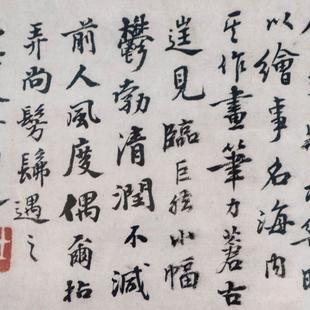 以繪事名海内
其作畫筆力蒼古
見臨巨然小幅
鬱勃清潤不減
前人風度偶爾拈
弄尚髣髴遇之